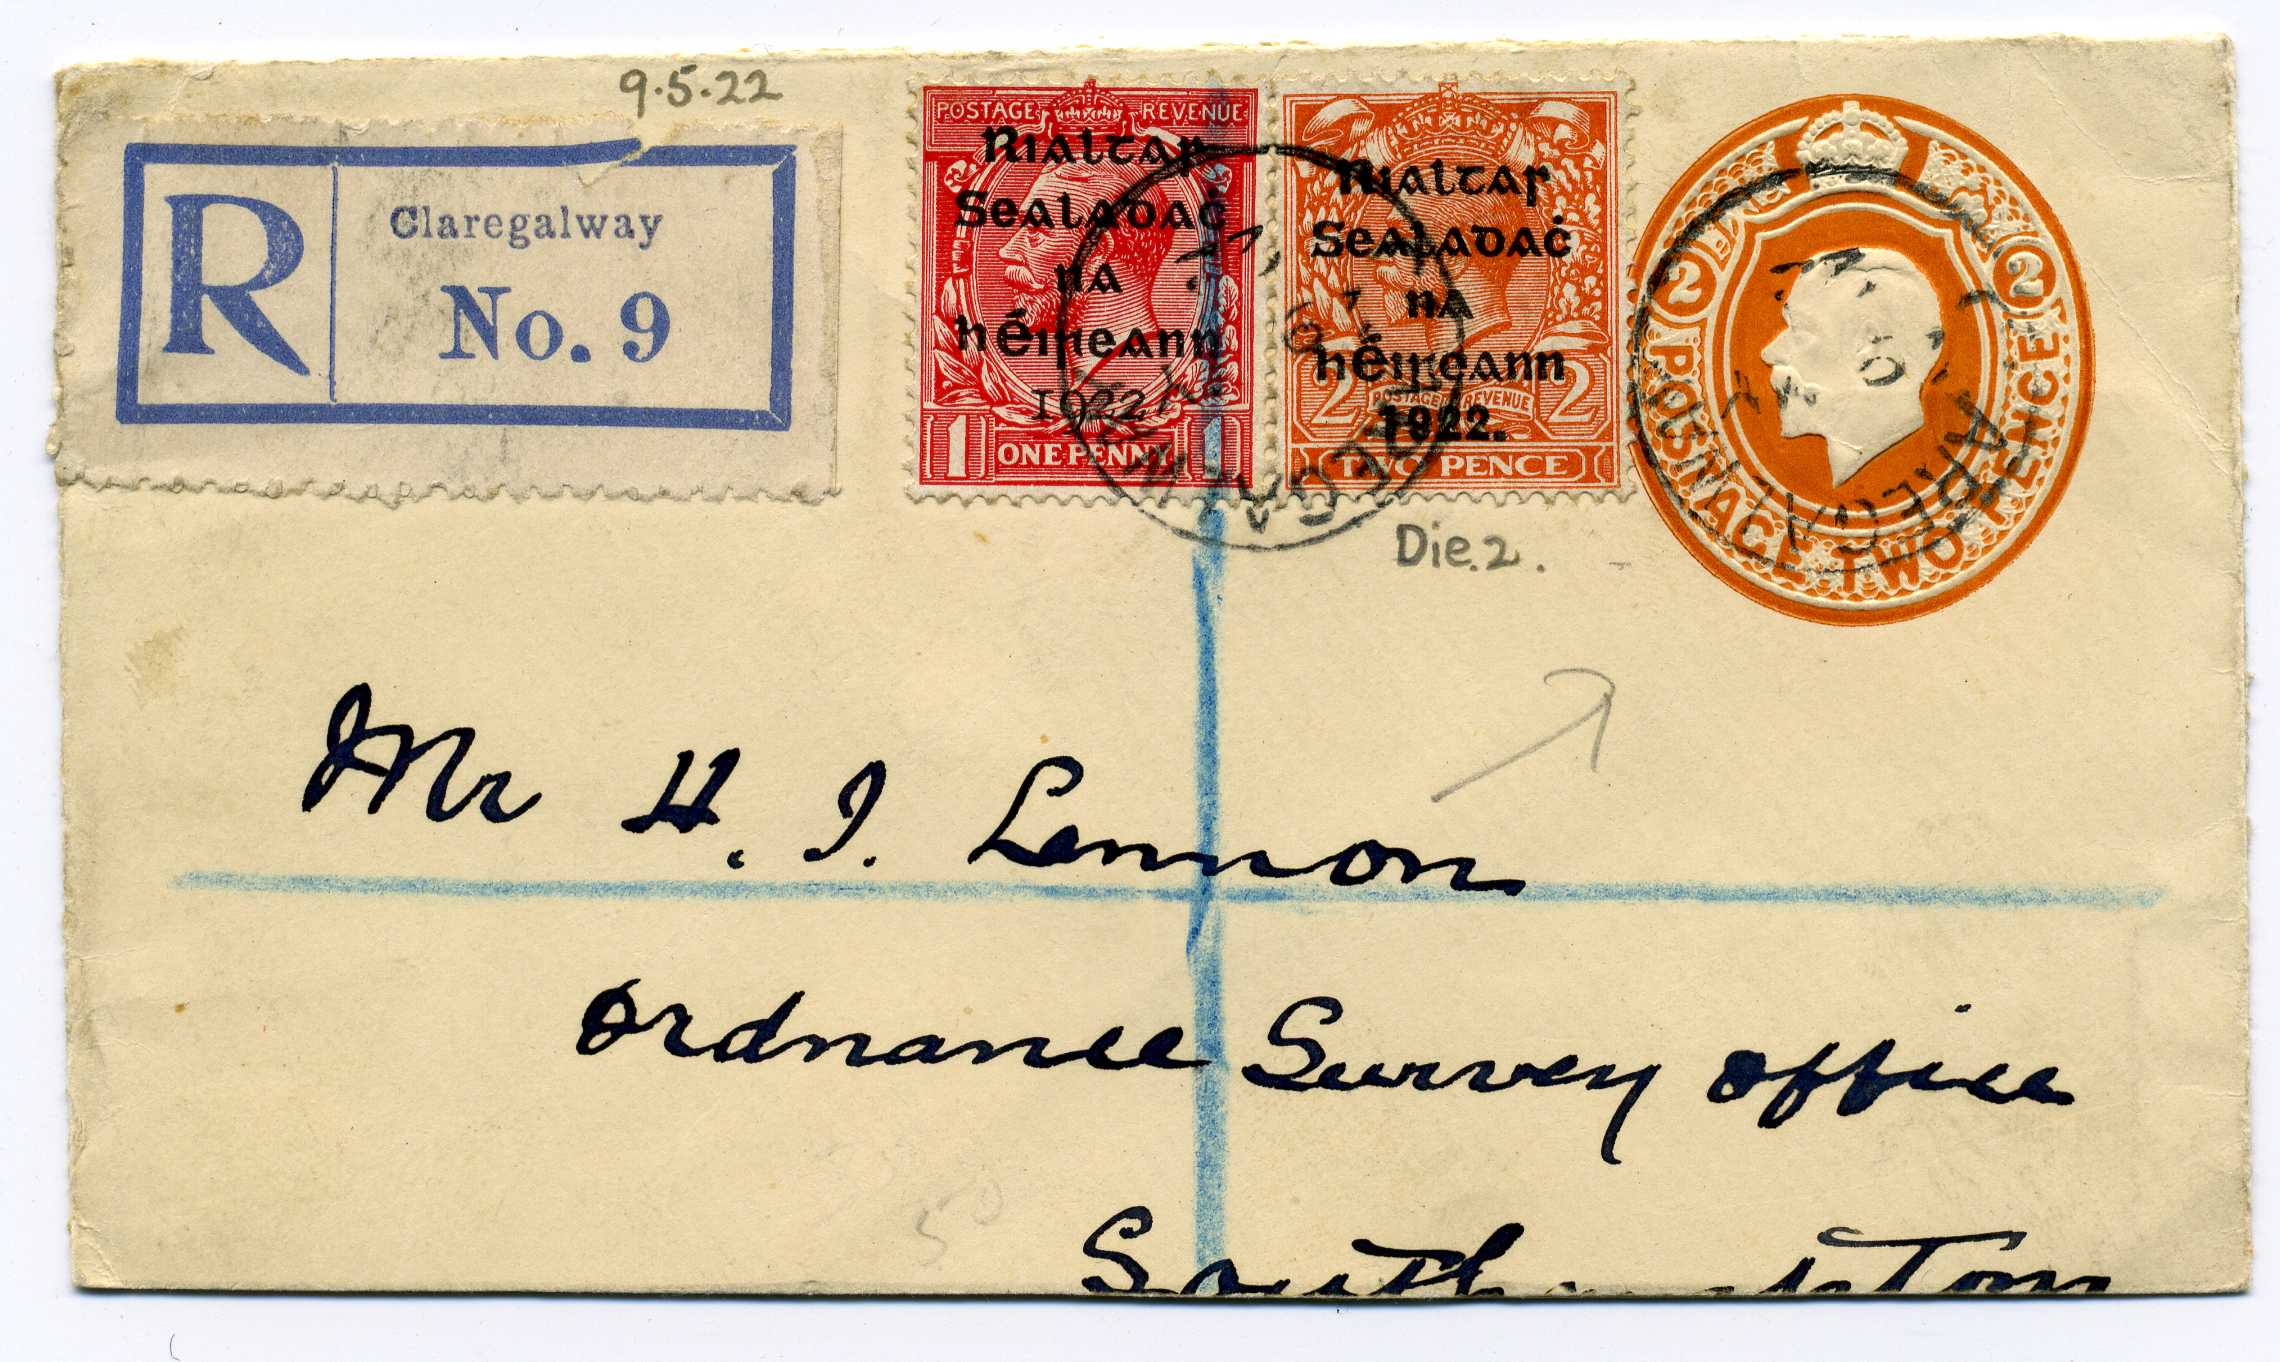 9.5.22
R
Claregalway
No. 9
POSTAGE REVENUE
Rialtas
Sealadaċ
na
hÉireann
1922
1 ONE PENNY
Rialtas
Sealadaċ
na
hÉireann
1922.
2 POSTAGE REVENUE 2
TWO PENCE
2 2
POSTAGE TWO PENCE
CLAREGALWAY
Die.2.
Mr H. J. Lennon
Ordnance Survey Office
Southampton
5